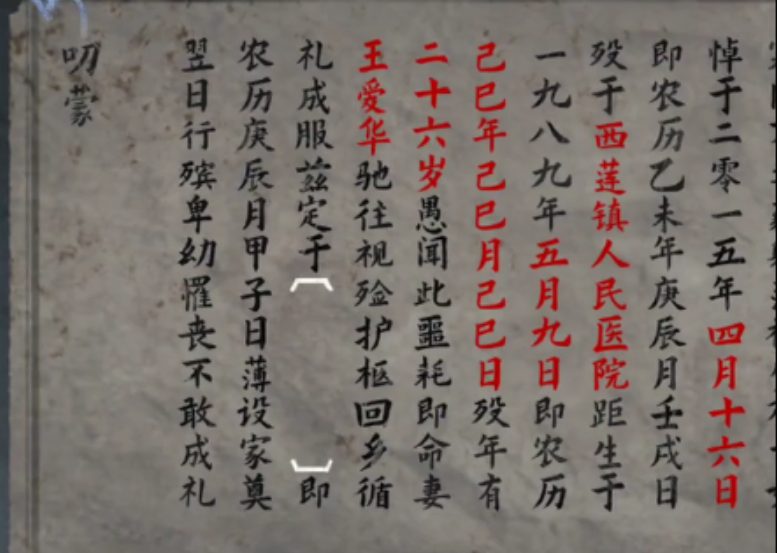 悼于二零一五年四月十六日
即农历乙未年庚辰月壬戌日
殁于西莲镇人民医院距生于
一九八九年五月九日即农历
己巳年己巳月己巳日殁年有
二十六岁愚闻此噩耗即命妻
王爱华驰往视殓护柩回乡循
礼成服兹定于〔 〕即
农历庚辰月甲子日薄设家奠
翌日行殡卑幼罹丧不敢成礼
叨蒙